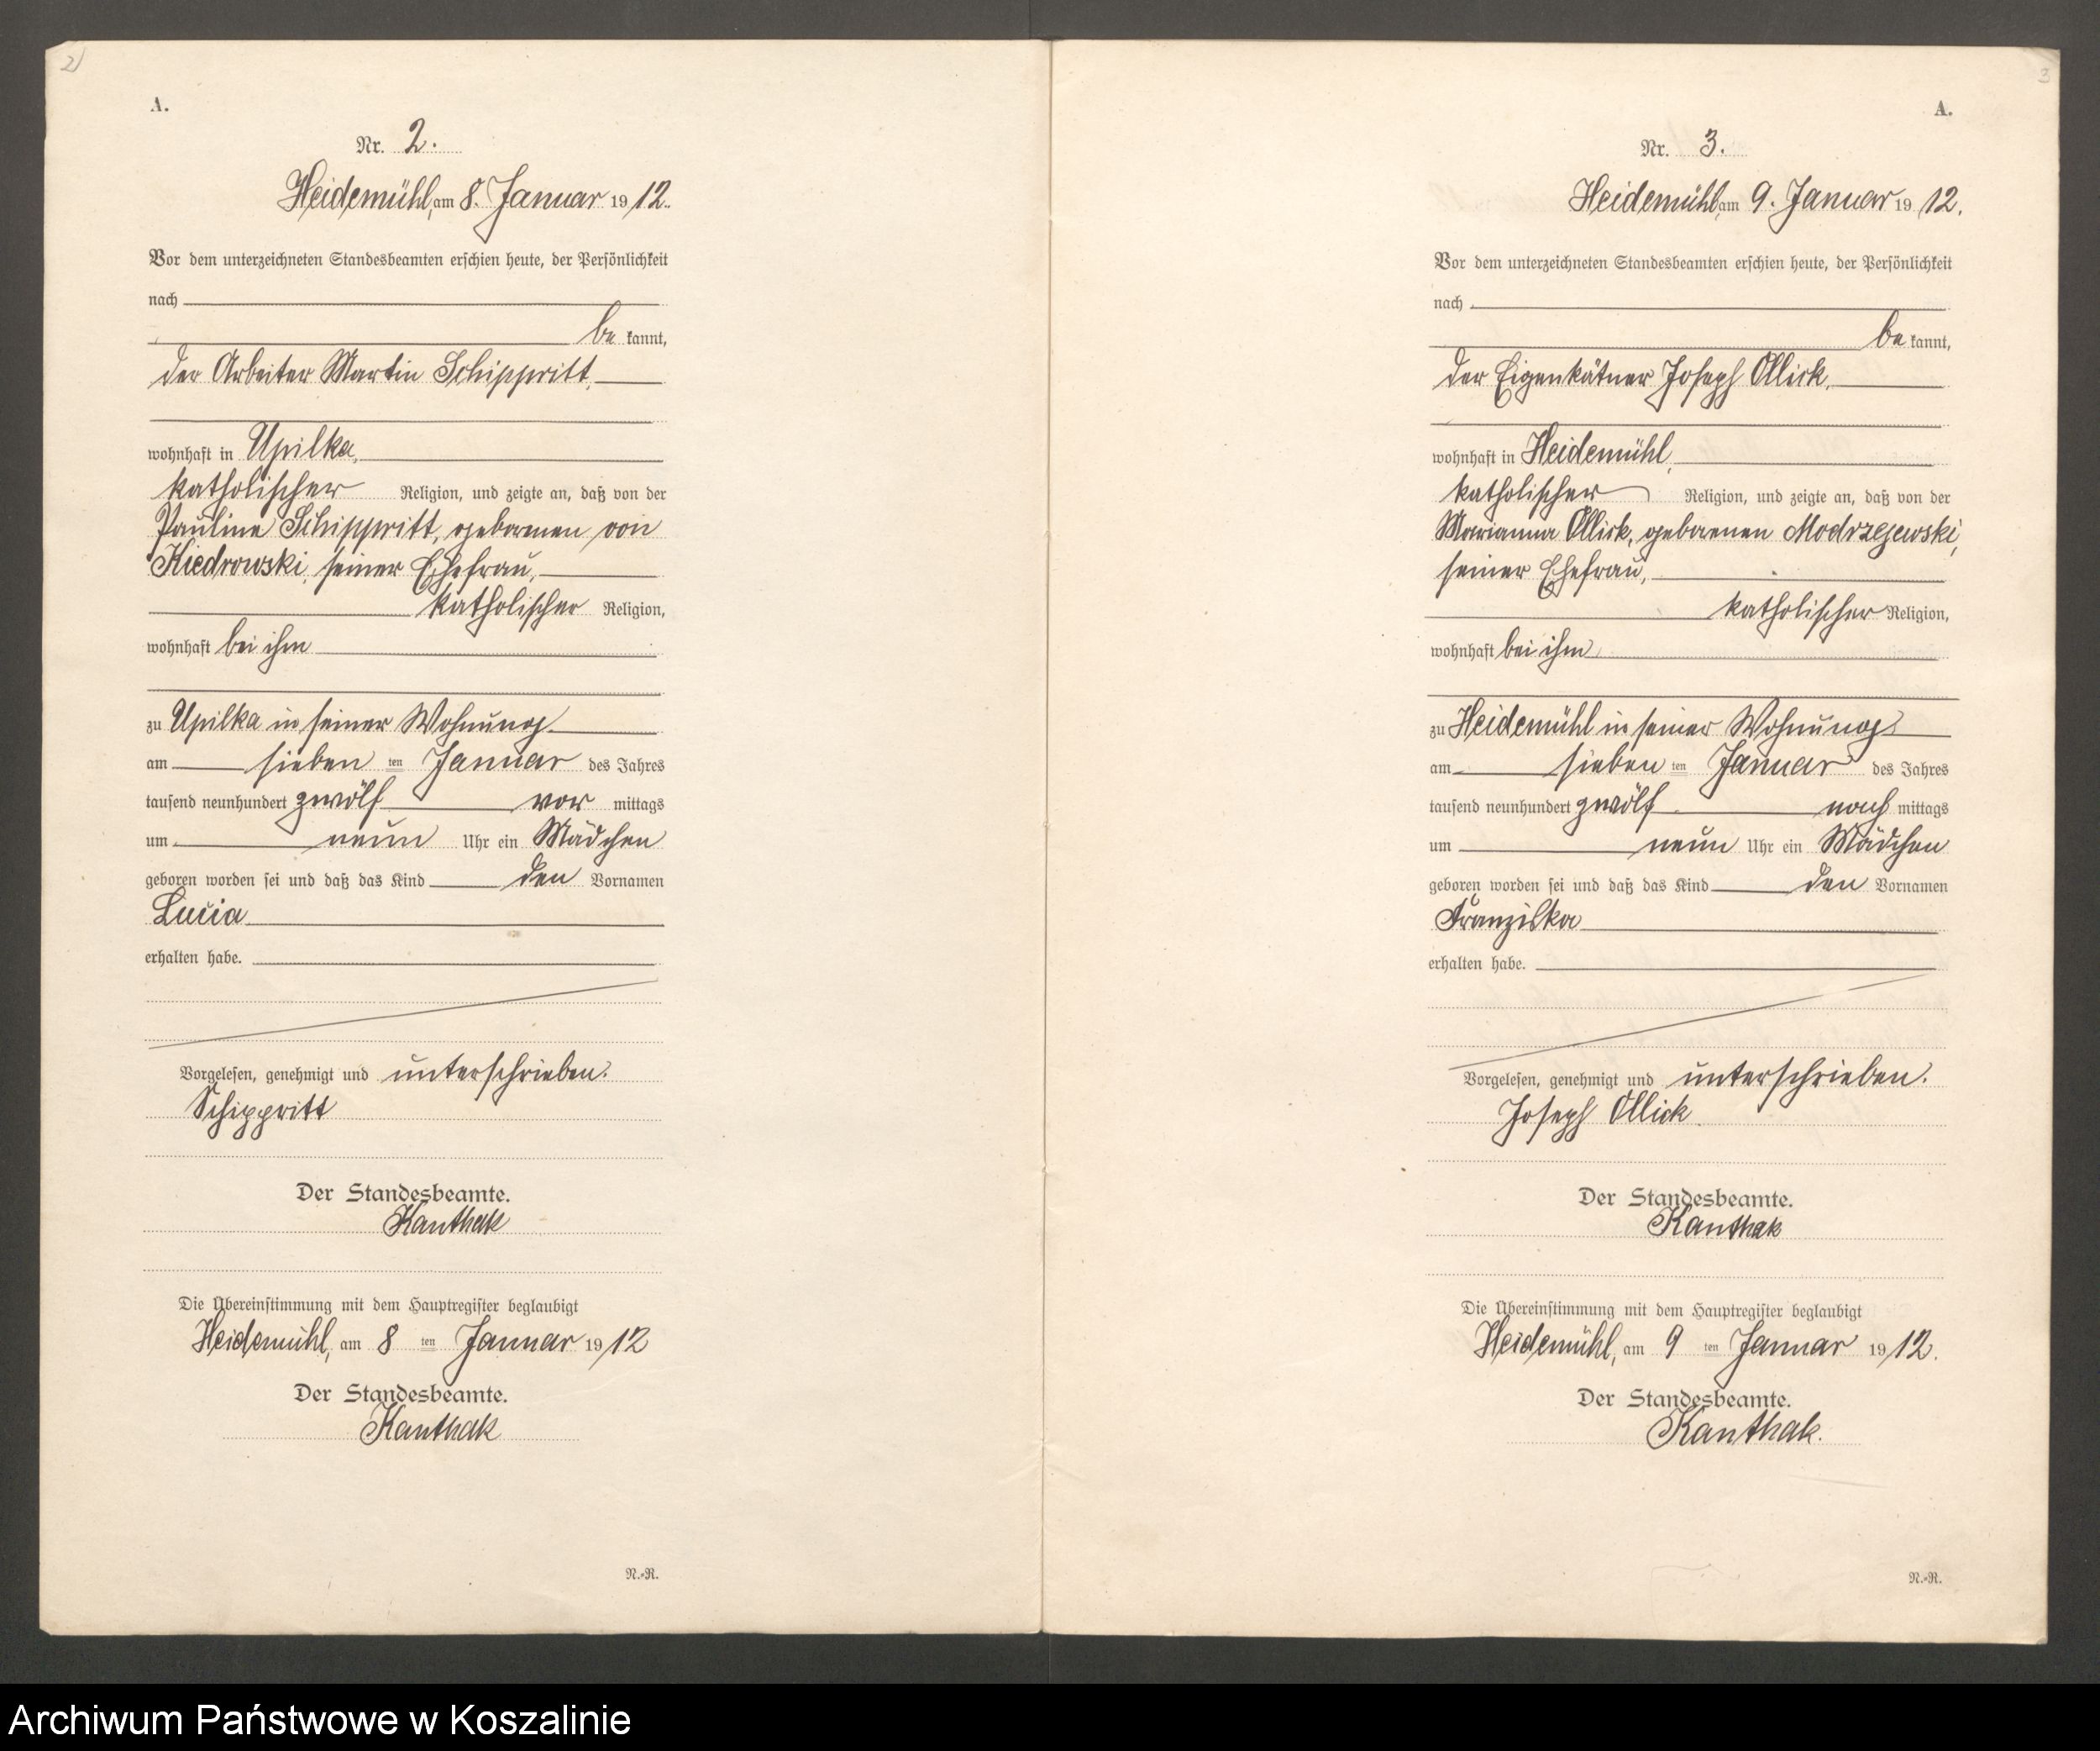 2)
A.
Nr. 2.
Heidemühl, am 8. Januar 1912.
Vor dem unterzeichneten Standesbeamten erschien heute, der Persönlichkeit
nach
be kannt,
der Arbeiter Martin Schippritt,
wohnhaft in Upilka,
katholischer Religion, und zeigte an, daß von der
Pauline Schippritt, geborenen von
Kiedrowski, seiner Ehefrau,
katholischer Religion,
wohnhaft bei ihm
zu Upilka in seiner Wohnung
am sieben ten Januar des Jahres
tausend neunhundert zwölf vor mittags
um neun Uhr ein Mädchen
geboren worden sei und daß das Kind den Vornamen
Lucia
erhalten habe.
Vorgelesen, genehmigt und unterschrieben.
Schippritt
Der Standesbeamte.
Kanthak
Die Übereinstimmung mit dem Hauptregister beglaubigt
Heidemühl, am 8 ten Januar 1912
Der Standesbeamte.
Kanthak
N.-R.
3
A.
Nr. 3.
Heidemühl, am 9. Januar 1912.
Vor dem unterzeichneten Standesbeamten erschien heute, der Persönlichkeit
nach
be kannt,
der Eigenkätner Joseph Ollick,
wohnhaft in Heidemühl,
katholischer Religion, und zeigte an, daß von der
Marianna Ollick, geborenen Modrzejewski,
seiner Ehefrau,
katholischer Religion,
wohnhaft bei ihm
zu Heidemühl in seiner Wohnung
am sieben ten Januar des Jahres
tausend neunhundert zwölf nach mittags
um neun Uhr ein Mädchen
geboren worden sei und daß das Kind den Vornamen
Franziska
erhalten habe.
Vorgelesen, genehmigt und unterschrieben.
Joseph Ollick
Der Standesbeamte.
Kanthak
Die Übereinstimmung mit dem Hauptregister beglaubigt
Heidemühl, am 9 ten Januar 1912.
Der Standesbeamte.
Kanthak.
N.-R.
Archiwum Państwowe w Koszalinie